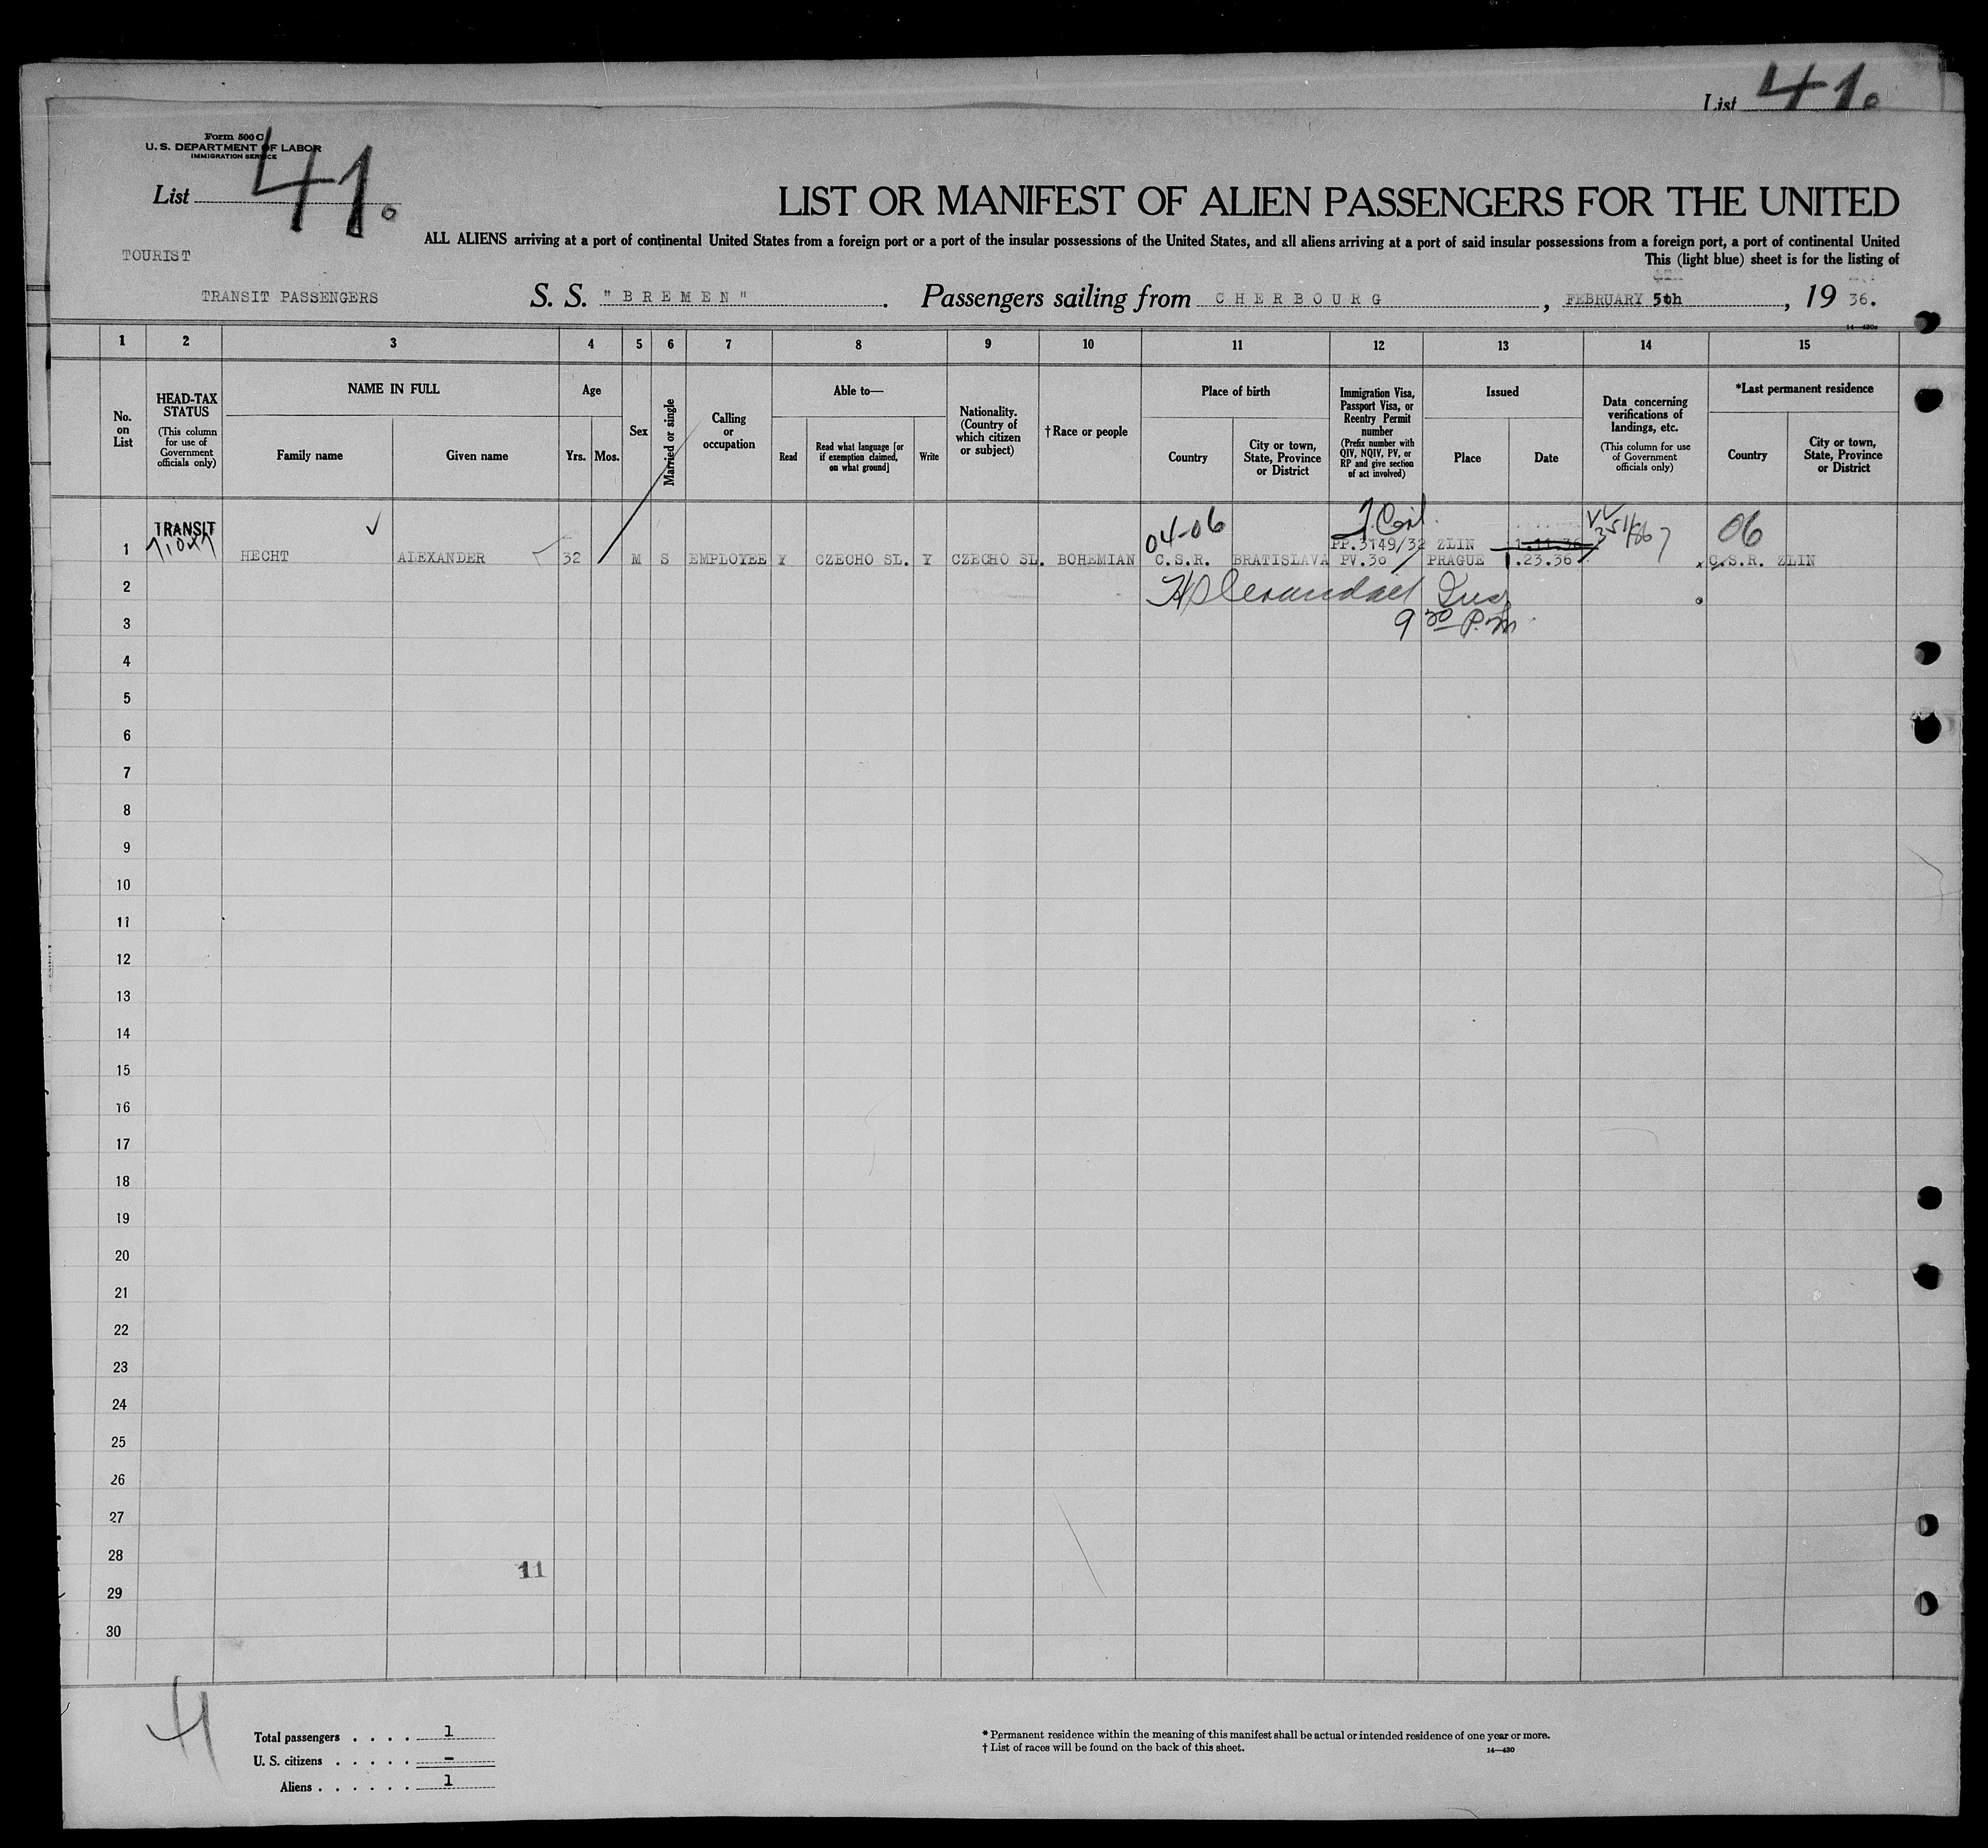 List 41.
Form 500 C
U. S. DEPARTMENT OF LABOR
IMMIGRATION SERVICE
List 41.
LIST OR MANIFEST OF ALIEN PASSENGERS FOR THE UNITED
ALL ALIENS arriving at a port of continental United States from a foreign port or a port of the insular possessions of the United States, and all aliens arriving at a port of said insular possessions from a foreign port, a port of continental United
This (light blue) sheet is for the listing of
TOURIST
TRANSIT PASSENGERS
S. S. "BREMEN". Passengers sailing from CHERBOURG, FEBRUARY 5th, 19 36.
1 2 3 4 5 6 7 8 9 10 11 12 13 14 15
No. on List
HEAD-TAX STATUS
(This column for use of Government officials only)
NAME IN FULL
Family name
Given name
Age
Yrs. Mos.
Sex
Married or single
Calling or occupation
Able to—
Read
Read what language [or if exemption claimed, on what ground]
Write
Nationality. (Country of which citizen or subject)
†Race or people
Place of birth
Country
City or town, State, Province or District
Immigration Visa, Passport Visa, or Reentry Permit number
(Prefix number with QIV, NQIV, PV, or RP and give section of act involved)
Issued
Place
Date
Data concerning verifications of landings, etc.
(This column for use of Government officials only)
*Last permanent residence
Country
City or town, State, Province or District
TRANSIT
04-06
06
PP.3149/32 ZLIN 1.11.36
1 HECHT ALEXANDER 32 M S EMPLOYEE Y CZECHO SL. Y CZECHO SL. BOHEMIAN C.S.R. BRATISLAVA PV.30 PRAGUE 1.23.36 C.S.R. ZLIN
2
3 9 30 P.M.
4
5
6
7
8
9
10
11
12
13
14
15
16
17
18
19
20
21
22
23
24
25
26
27
28
11
29
30
Total passengers . . . . 1
U. S. citizens . . . . . –
Aliens . . . . . . 1
* Permanent residence within the meaning of this manifest shall be actual or intended residence of one year or more.
† List of races will be found on the back of this sheet.
14—430